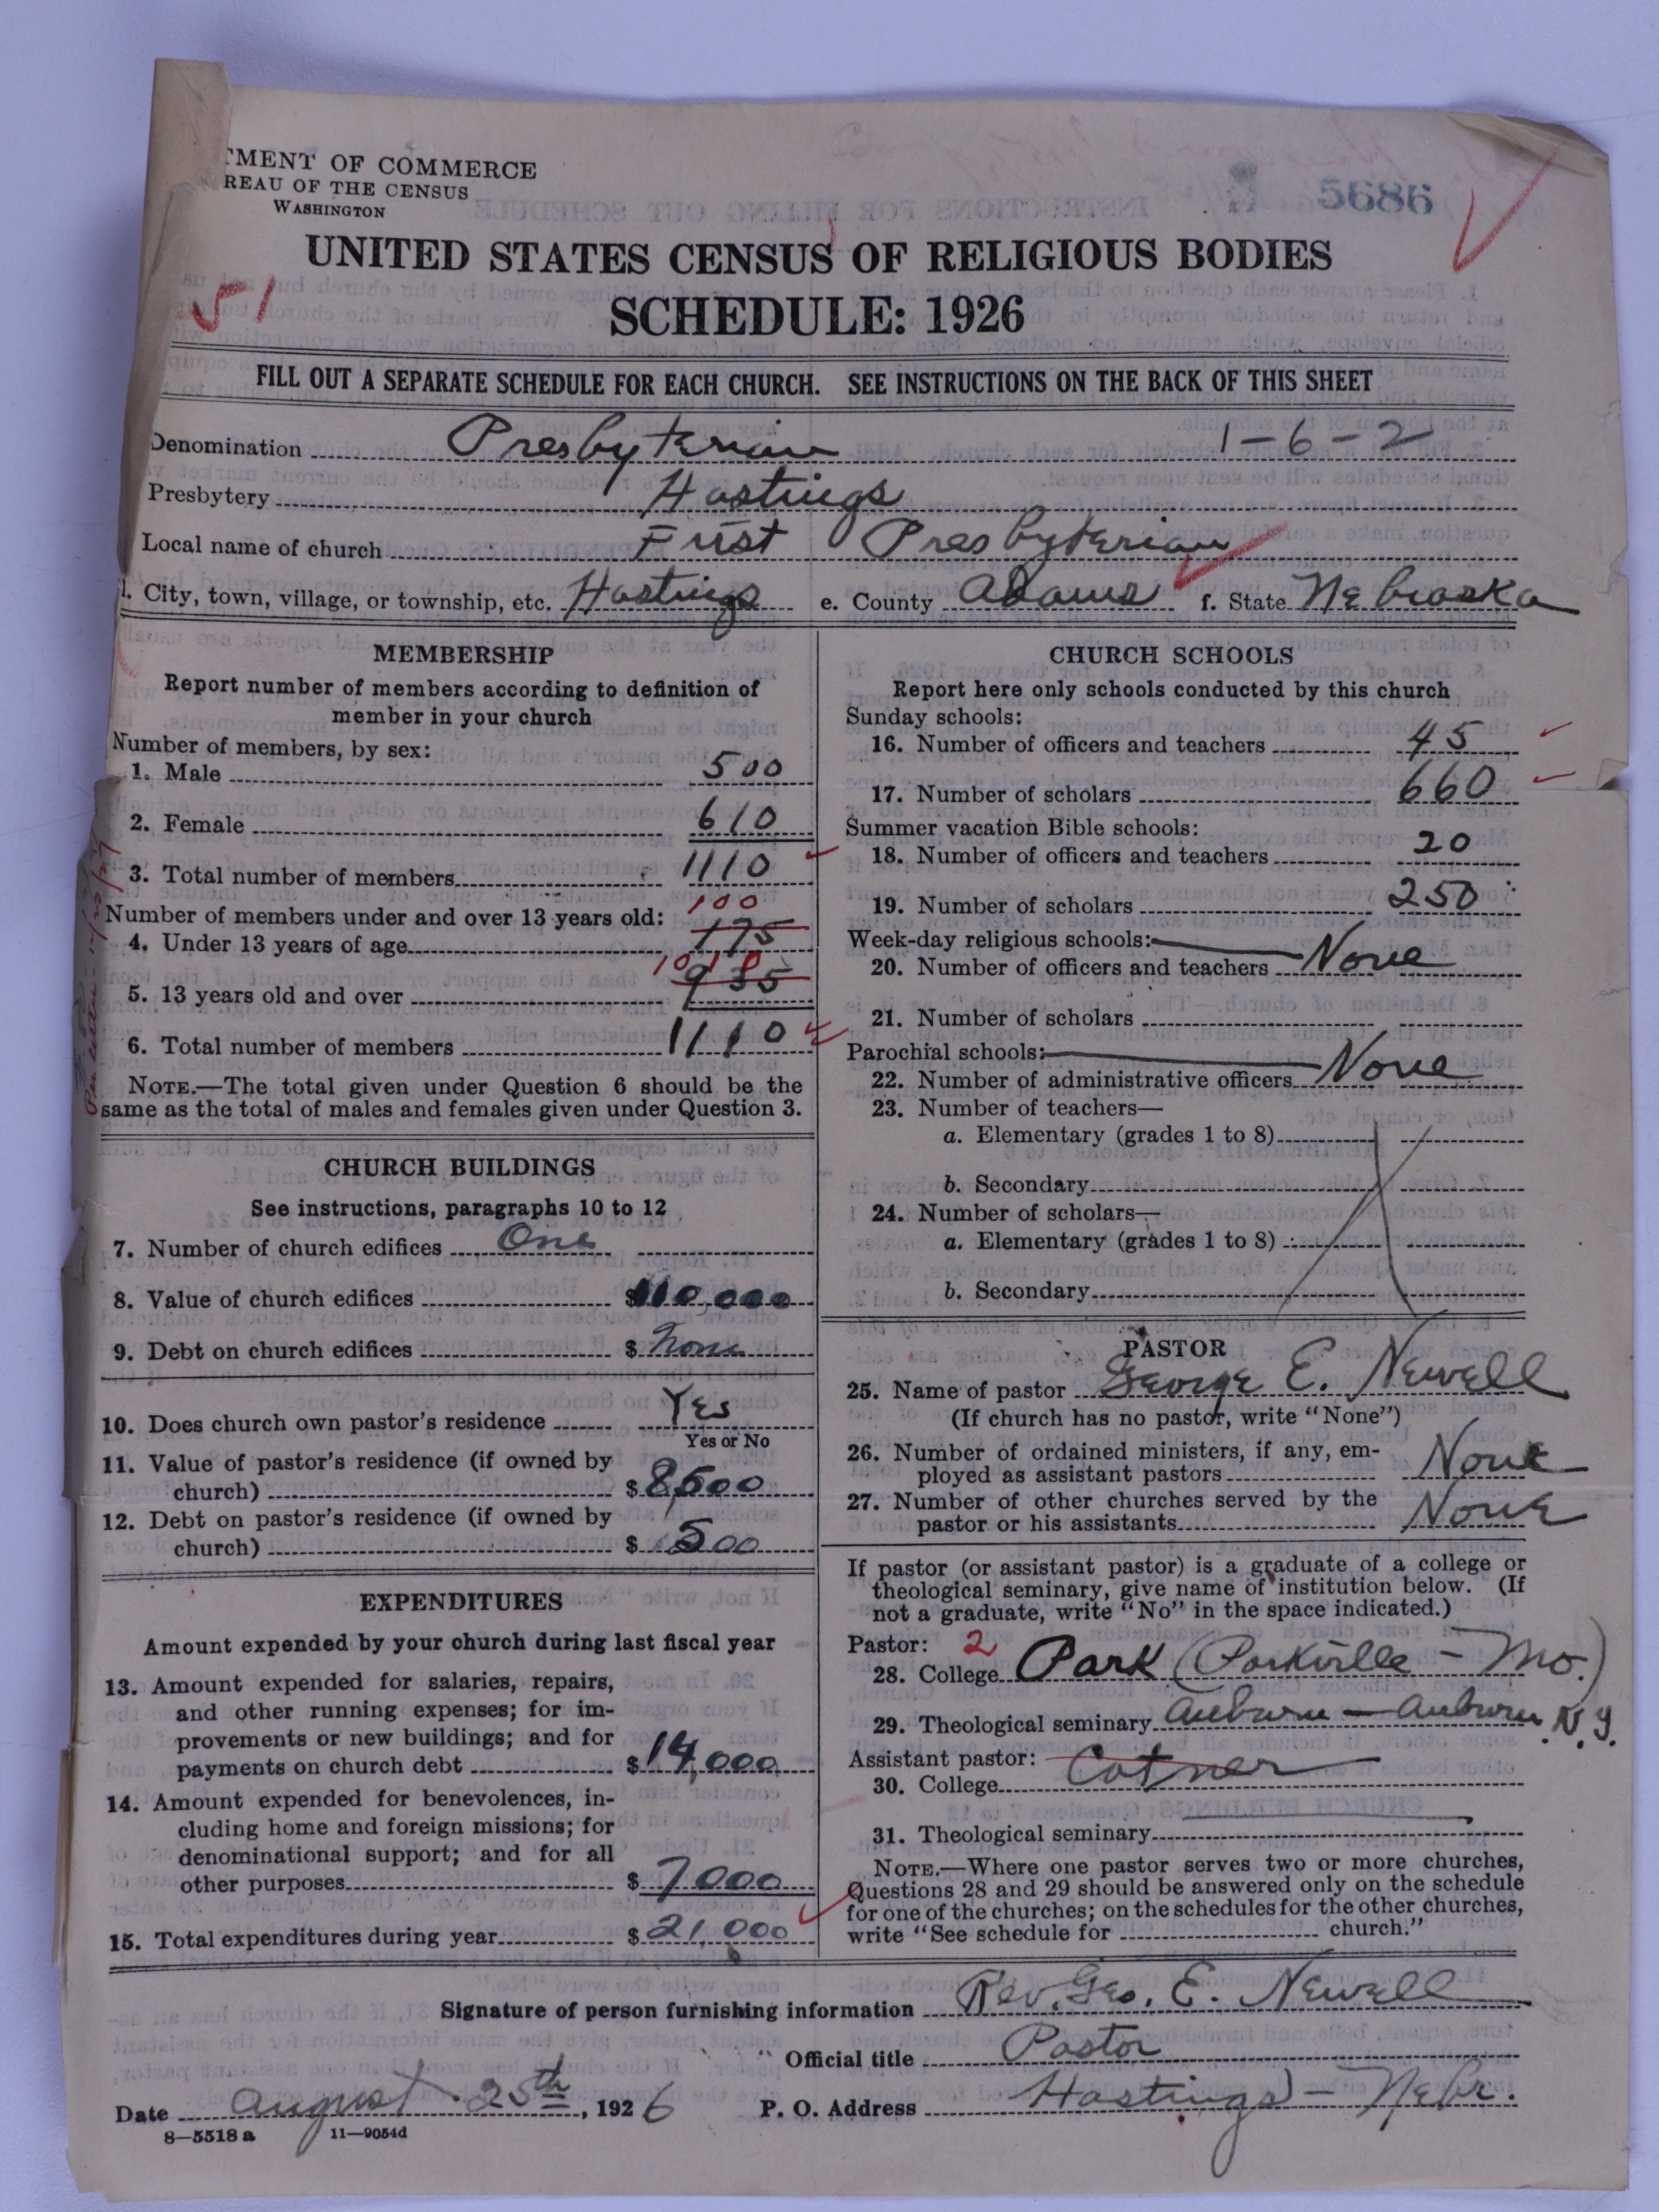 TMENT OF COMMERCE
REAU OF THE CENSUS
WASHINGTON
5686
UNITED STATES CENSUS OF RELIGIOUS BODIES
51
SCHEDULE: 1926
FILL OUT A SEPARATE SCHEDULE FOR EACH CHURCH. SEE INSTRUCTIONS ON THE BACK OF THIS SHEET
Denomination Presbyterian 1-6-2
Presbytery Hastings
Local name of church First Presbyterian
d. City, town, village, or township, etc. Hastings e. County Adams f. State Nebraska
MEMBERSHIP
Report number of members according to definition of
member in your church
Number of members, by sex:
1. Male 500
2. Female 610
3. Total number of members 1110
Number of members under and over 13 years old: 100
4. Under 13 years of age 175
1010
5. 13 years old and over 935
6. Total number of members 1110
NOTE.—The total given under Question 6 should be the
same as the total of males and females given under Question 3.
CHURCH BUILDINGS
See instructions, paragraphs 10 to 12
7. Number of church edifices One
8. Value of church edifices $110,000
9. Debt on church edifices $ None
10. Does church own pastor's residence Yes
Yes or No
11. Value of pastor's residence (if owned by
church) $ 8,500
12. Debt on pastor's residence (if owned by
church) $ 500
EXPENDITURES
Amount expended by your church during last fiscal year
13. Amount expended for salaries, repairs,
and other running expenses; for im-
provements or new buildings; and for
payments on church debt $ 14,000
14. Amount expended for benevolences, in-
cluding home and foreign missions; for
denominational support; and for all
other purposes $ 7000
15. Total expenditures during year $ 21,000
CHURCH SCHOOLS
Report here only schools conducted by this church
Sunday schools:
16. Number of officers and teachers 45
17. Number of scholars 660
Summer vacation Bible schools:
18. Number of officers and teachers 20
19. Number of scholars 250
Week-day religious schools:
20. Number of officers and teachers None
21. Number of scholars
Parochial schools:
22. Number of administrative officers None
23. Number of teachers—
a. Elementary (grades 1 to 8)
b. Secondary
24. Number of scholars—
a. Elementary (grades 1 to 8)
b. Secondary
PASTOR
25. Name of pastor George E. Newell
(If church has no pastor, write "None")
26. Number of ordained ministers, if any, em-
ployed as assistant pastors None
27. Number of other churches served by the
pastor or his assistants None
If pastor (or assistant pastor) is a graduate of a college or
theological seminary, give name of institution below. (If
not a graduate, write "No" in the space indicated.)
Pastor: 2
28. College Park (Parkville - Mo.)
29. Theological seminary Auburn - Auburn N.Y.
Assistant pastor:
30. College Cotner
31. Theological seminary
NOTE.—Where one pastor serves two or more churches,
Questions 28 and 29 should be answered only on the schedule
for one of the churches; on the schedules for the other churches,
write "See schedule for church."
Signature of person furnishing information Rev. Geo. E. Newell
Official title Pastor
Date August 25th, 1926 P. O. Address Hastings - Nebr.
8—5518 a 11—9054d